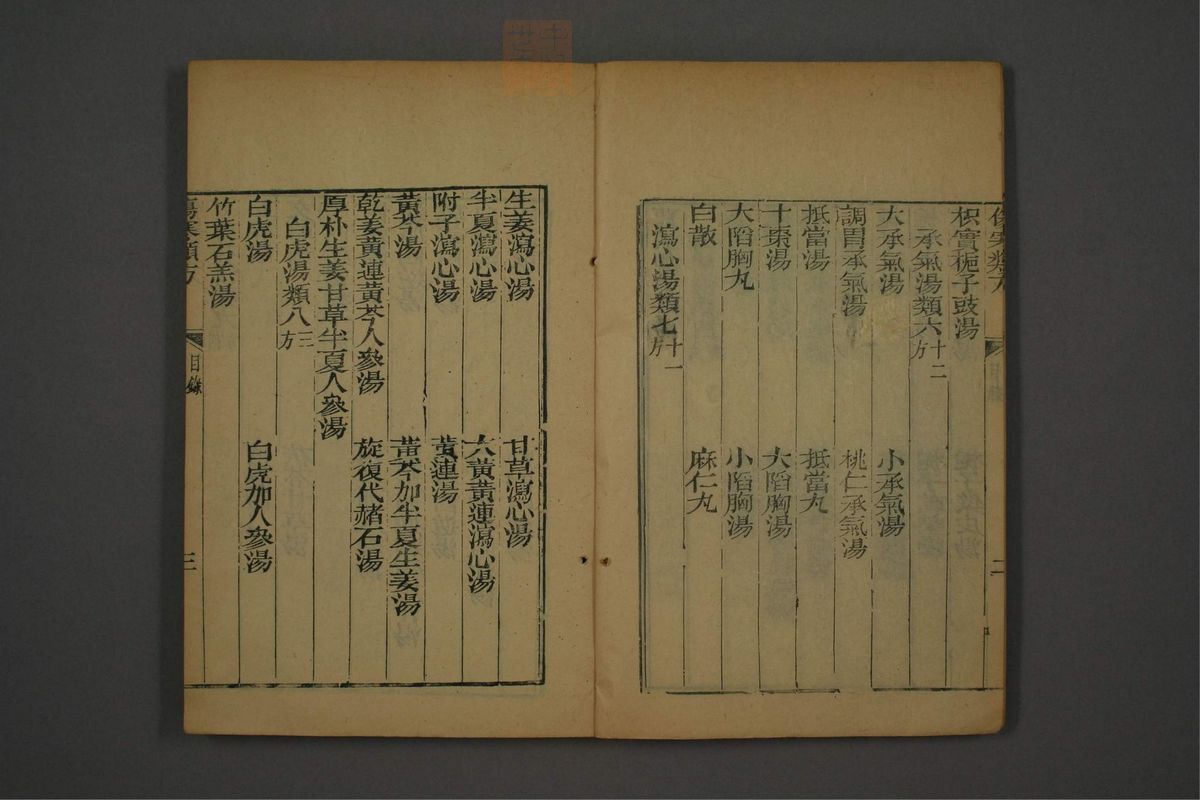 傷寒類方
二
枳實梔子豉湯
承氣湯類六十二方
大承氣湯 小承氣湯
調胃承氣湯 桃仁承氣湯
抵當湯 抵當丸
十棗湯 大陷胸湯
大陷胸丸 小陷胸湯
白散 麻仁丸
瀉心湯類七十一方
生姜瀉心湯 甘草瀉心湯
半夏瀉心湯 大黃黃連瀉心湯
附子瀉心湯 黃連湯
黃芩湯 黃芩加半夏生姜湯
乾姜黃連黃芩人參湯 旋復代赭石湯
厚朴生姜甘草半夏人參湯
白虎湯類八三方
白虎湯 白虎加人參湯
竹葉石羔湯
傷寒類方 目錄 三